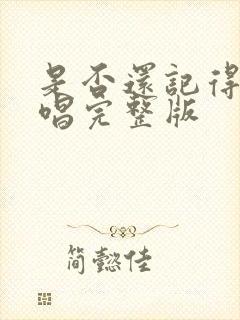 是否還記得
唱完整版
簡懿佳